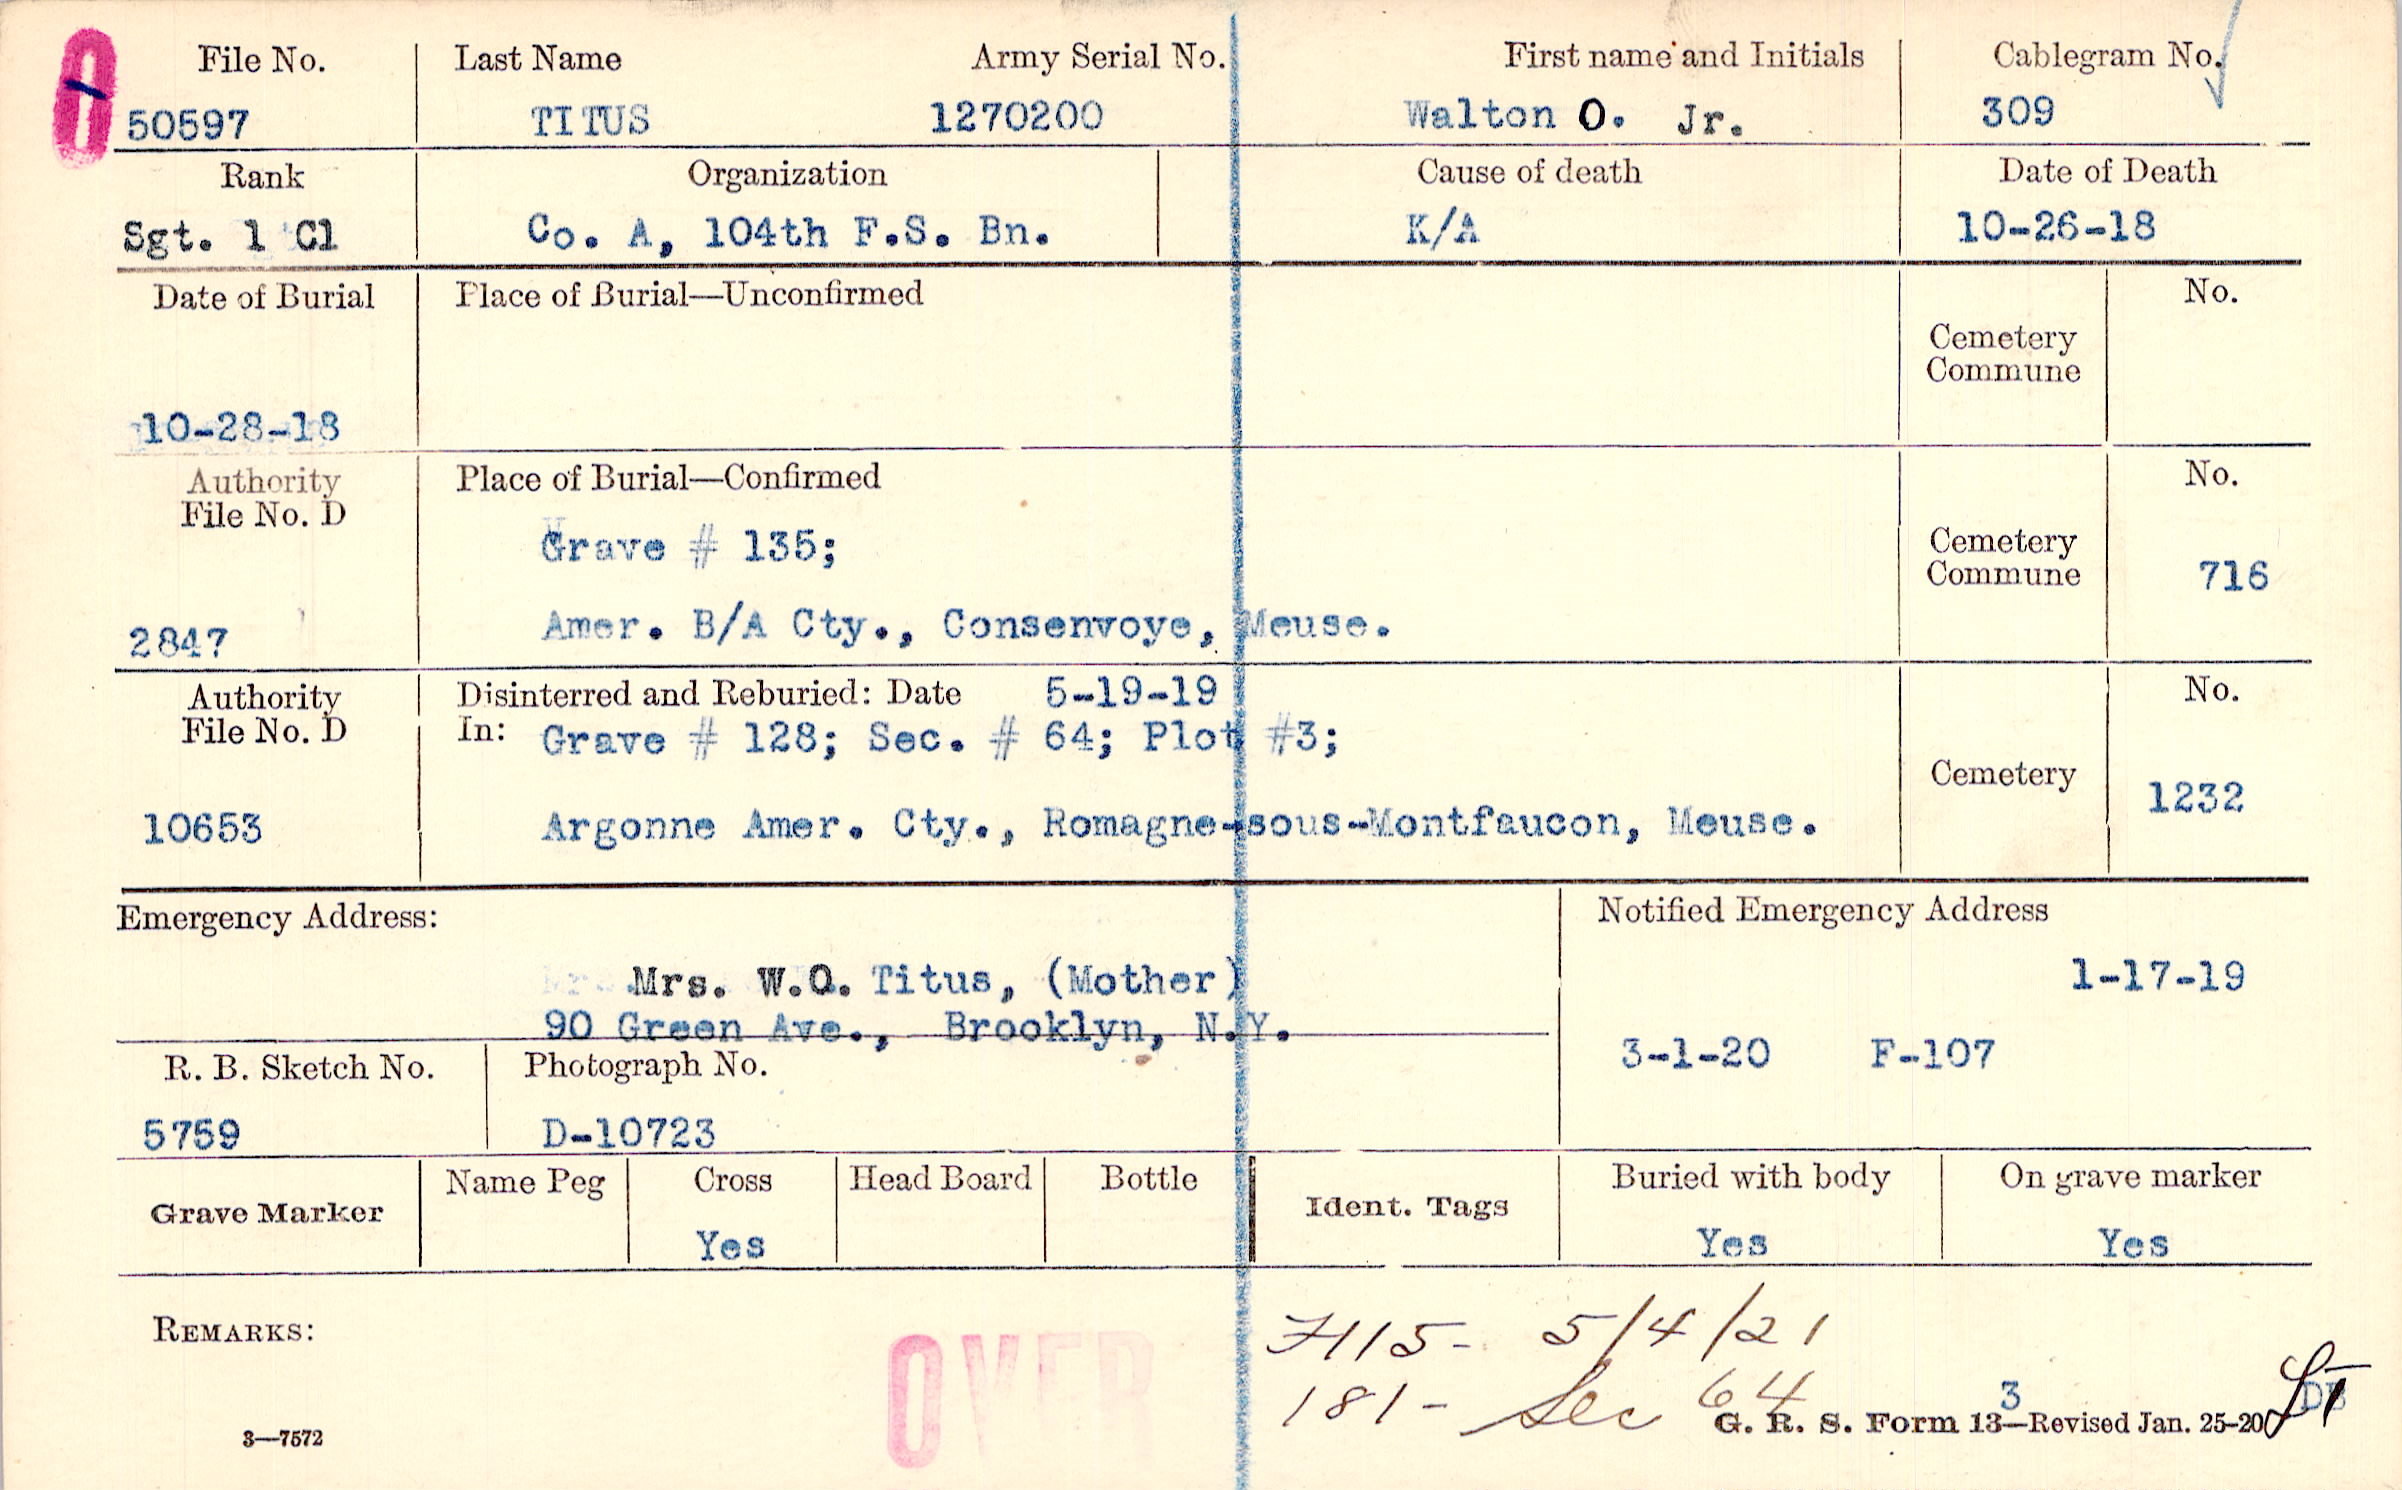 File No. Last Name Army Serial No. First name and Initials Cablegram No.
50597 TITUS 1270200 Walton O. Jr. 309
Rank Organization Cause of death Date of Death
Sgt. 1 Cl Co. A, 104th F.S. Bn. K/A 10-26-18
Date of Burial Place of Burial—Unconfirmed No.
Cemetery
Commune
10-28-18
Authority Place of Burial—Confirmed No.
File No. D
Grave # 135; Cemetery
Commune 716
2847 Amer. B/A Cty., Consenvoye, Meuse.
Authority Disinterred and Reburied: Date 5-19-19 No.
File No. D In: Grave # 128; Sec. # 64; Plot #3;
Cemetery 1232
10653 Argonne Amer. Cty., Romagne-sous-Montfaucon, Meuse.
Emergency Address: Notified Emergency Address
Mrs. W.O. Titus, (Mother) 1-17-19
90 Green Ave., Brooklyn, N.Y.
R. B. Sketch No. Photograph No. 3-1-20 F-107
5759 D-10723
Grave Marker Name Peg Cross Head Board Bottle Ident. Tags Buried with body On grave marker
Yes Yes Yes
REMARKS: 5/4/21
OVER
181- Sec 64 3
3—7572 G. R. S. Form 13—Revised Jan. 25-20